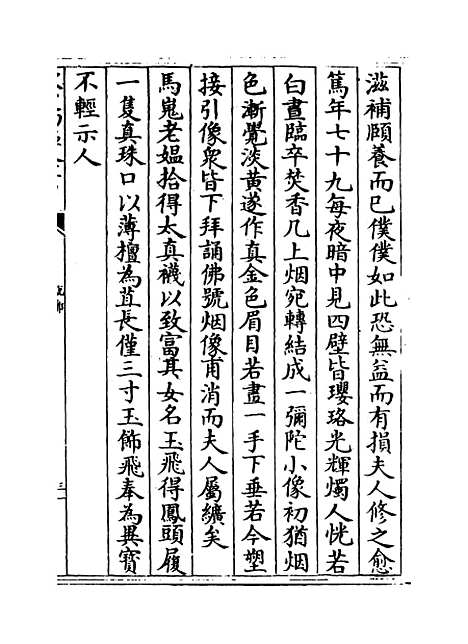 滋補頤養而已僕僕如此恐無益而有損夫人修之愈
篤年七十九每夜暗中見四壁皆瓔珞光輝燭人恍若
白晝臨卒焚香几上烟宛轉結成一彌陀小像初猶烟
色漸覺淡黃遂作真金色眉目若畫一手下垂若今塑
接引像衆皆下拜誦佛號烟像甫消而夫人屬纊矣
馬嵬老媪拾得太真襪以致富其女名玉飛得鳳頭履
一隻真珠口以薄檀為苴長僅三寸玉飾飛奉為異寶
不輕示人